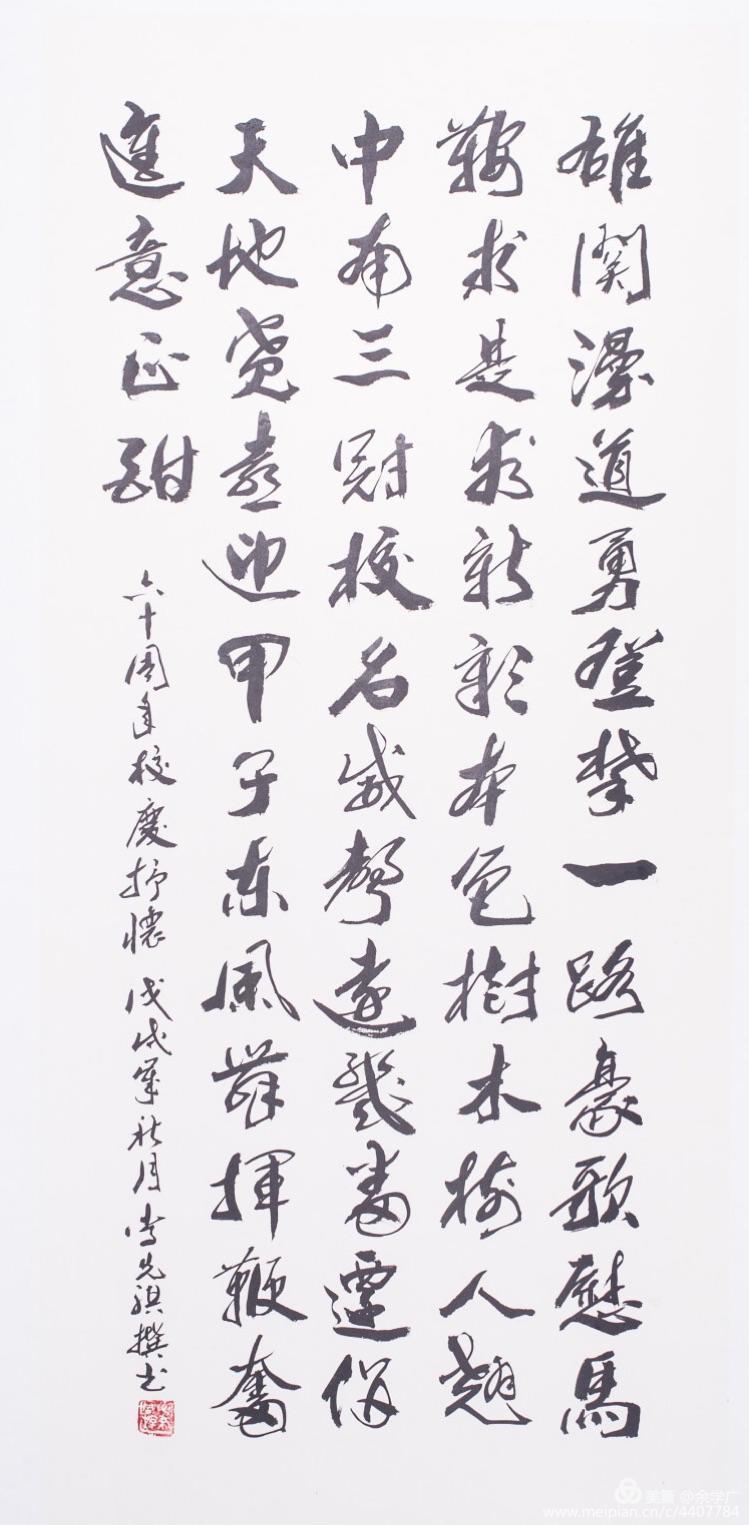 雄関漫道勇登攀一路豪歌慰馬
鞍求是求新彰本色樹木樹人翹
中南三冠校名威聲遠幾番遷併
天地寬喜迎甲子東風勁揮鞭奮
進意正酣
六十周年校慶抒懷 戊戌年秋月 先祺撰书
美篇 @余学广
www.meipian.cn/c/4407784